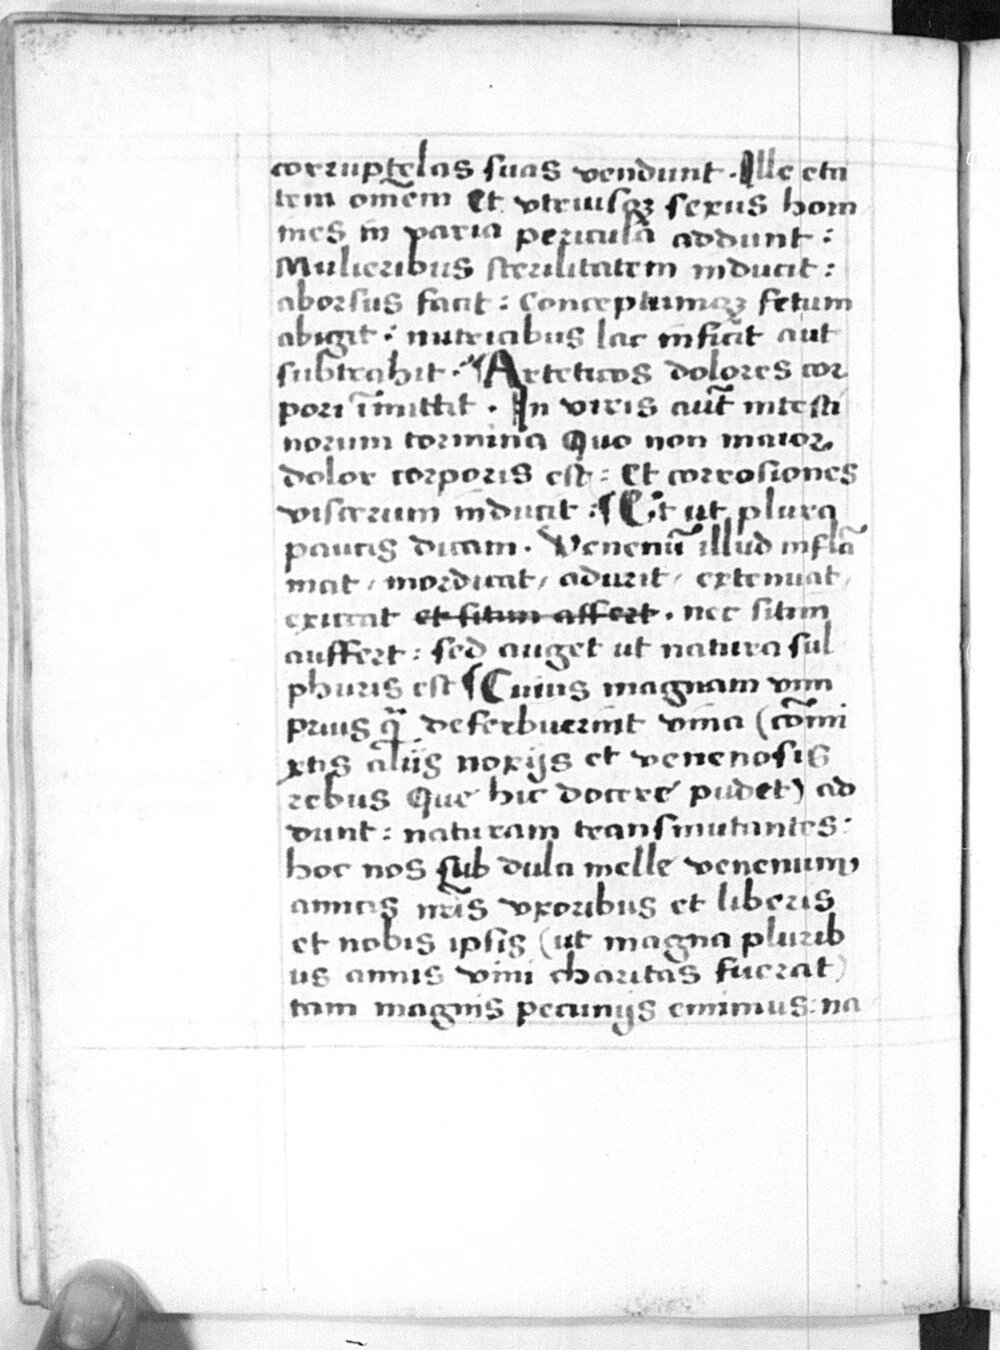 corruptelas suas vendunt. Ille eta
tem om̄em Et vtriusqꝫ sexus hom
ines in varia pericula addunt:
Mulieribus sterilitatem inducit:
aborsus facit: Conceptumqꝫ fetum
abigit: nutricibus lac inficit aut
subtrahit. ¶ Arteticos dolores cor
pori īmittit. In viris aut̄ intesti
norum tormina Quo non maior
dolor corporis est: Et corrosiones
viscerum inducit: ¶ Et ut plura
paucis dicam. Venenū illud inflā
mat/ mordicat/ adurit/ extenuat/
excitat et sitim affert. nec sitim
auffert: sed auget ut natura sul
phuris est ¶ Cuius magnam vim
prius q̄ deferbuerint vina (com̄i
xtis alijs noxijs et venenosis
rebus Que hic docere pudet) ad
dunt: naturam transmutantes:
hoc nos sub dulci melle venenum
amicis nr̄is vxoribus et liberis
et nobis ipsis (ut magna plurib
us annis vini charitas fuerat)
tam magnis pecunijs emimus: na